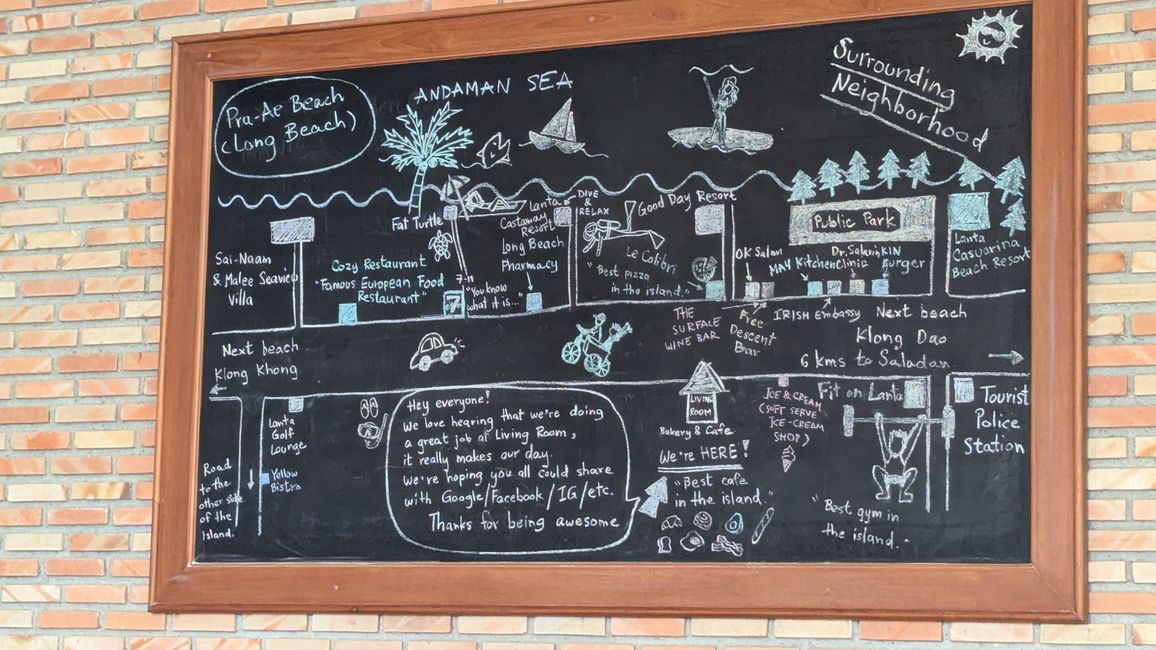 Pra-Ae Beach
(Long Beach)
ANDAMAN SEA
Surrounding
Neighborhood
Sai-Naam
& Malee Seaview
Villa
Cozy Restaurant
"Famous European Food
Restaurant"
Fat Turtle
7-11
7
"You know
what it is..."
Lanta
Castaway
Resort
Long Beach
Pharmacy
DIVE
&
RELAX
Good Day Resort
Le Colibri
"Best pizza
in the island."
OK Salon
Public Park
MAY Kitchen
Dr. Salarin
Clinic
KIN
Burger
Lanta
Casuarina
Beach Resort
THE
SURFACE
WINE BAR
Free
Descent
Bar
IRISH Embassy
Next beach
Klong Dao
6 Kms to Saladan
Next beach
Klong Khong
Road
to the
other side
of the
island.
Lanta
Golf
Lounge
Yellow
Bistro
Hey everyone!
We love hearing that we're doing
a great job at Living Room,
it really makes our day.
We're hoping you all could share
with Google/Facebook/IG/etc.
Thanks for being awesome
LIVING
ROOM
Bakery & Cafe
We're HERE!
"Best cafe
in the island."
ICE & CREAM
(SOFT SERVE
ICE-CREAM
SHOP)
Fit on Lanta
"Best gym in
the island."
Tourist
Police
Station